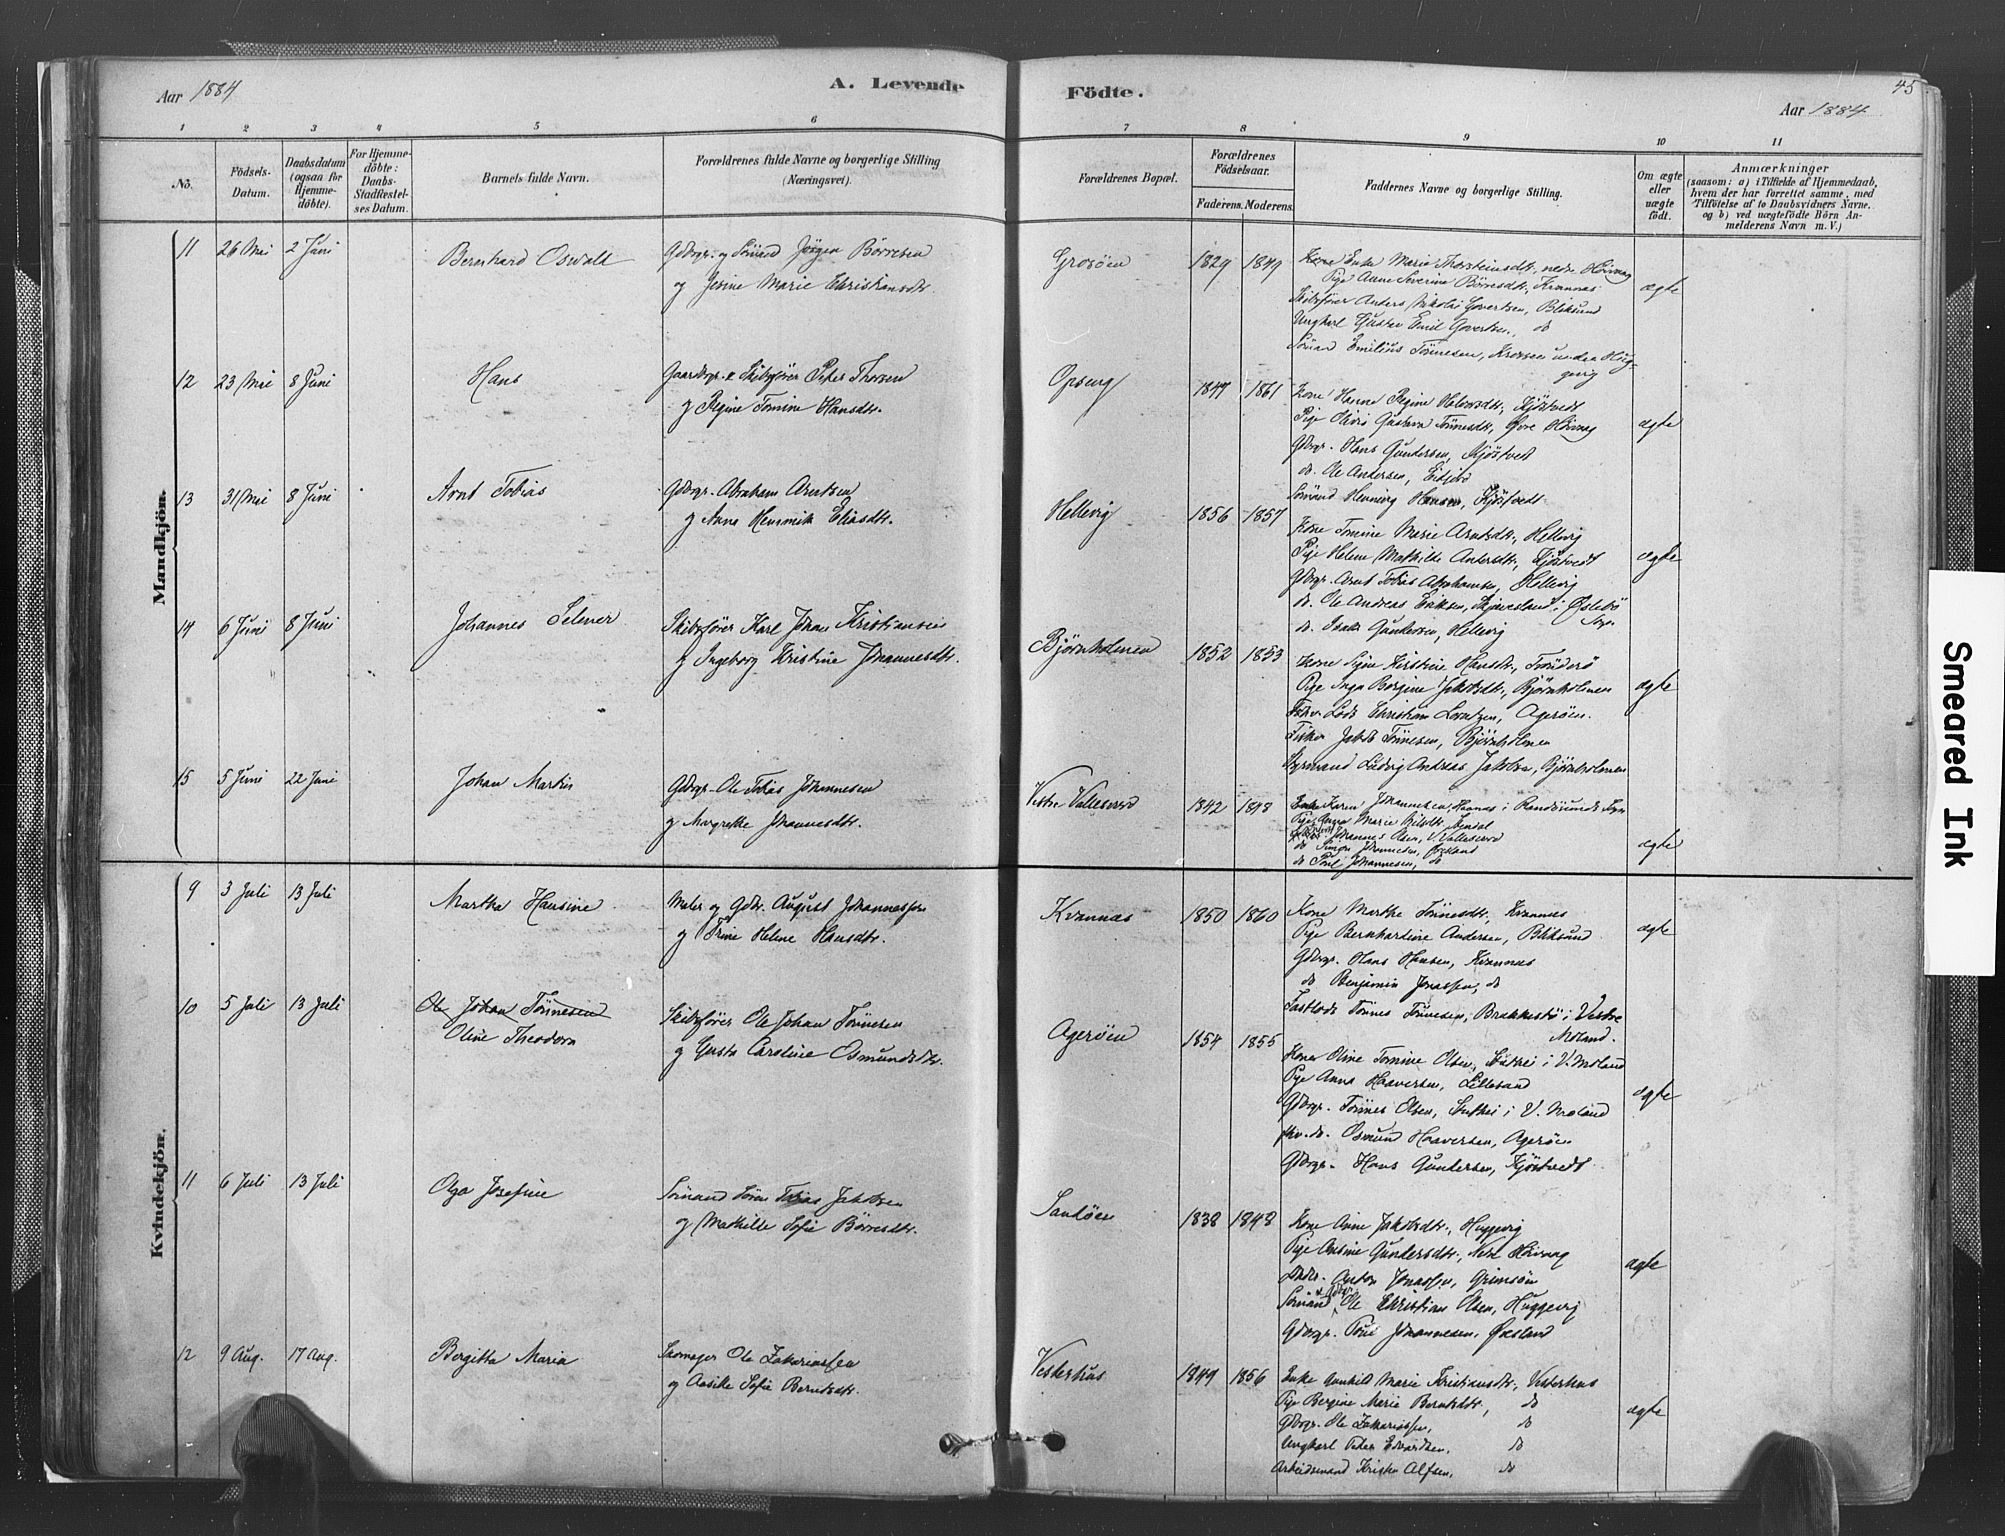 Aar 1884
A. Levende
Födte.
45
Aar 1884
1 2 3 4 5 6 7 8 9 10 11
No.
Födsels-
Datum.
Daabsdatum
(ogsaa for
Hjemme-
döbte).
For Hjemme-
döbte:
Daabs-
Stadfæstel-
ses Datum.
Barnets fulde Navn.
Forældrenes fulde Navne og borgerlige Stilling
(Næringsvei).
Forældrenes Bopæl.
Forældrenes
Födselsaar.
Faderens. Moderens.
Faddernes Navne og borgerlige Stilling.
Om ægte
eller
uægte
födt.
Anmærkninger
(saasom: a) i Tilfælde af Hjemmedaab,
hvem der har forrettet samme, med
Tilföielse af to Daabsvidners Navne,
og b) ved uægtefödte Börn An-
melderens Navn m. V.)
Mandkjön.
11 26 Mai 2 Juni
Bernhard Oswald
Gdbrgr. og Sømand Jørgen Børresen
og Jesine Marie Christiansdtr.
Grosøen
1829 1849
Enke Marie Thorsteinsdtr., nedre Høivaag
Pige Anne Severine Børresdtr., Kvannæs
Skibsfører Anders Nikolai Govertsen, Bliksund
Ungkarl Gustav Emil Govertsen, do
Sømand Emilius Tønnesen,
ægte
12 23 Mai 8 Juni
Hans
Gaardbgr. & Skibsfører Peter Thorsen
og Regine Tomine Hansdtr.
Opsung
1847 1861
Kone Hanne Regine Kjøstvedt
Pige Olivia Gustava Tønnesdtr., Øvre Høivaag
Gdbrgr. Hans Gundersen, Kjøstvedt
do. Ole Andersen,
Sømand Henning Hansen, Kjøstvedt
ægte
13 31 Mai 8 Juni
Arnt Tobias
Gdbrgr. Abraham Arntsen
og Anne Henrmik Eliasdtr.
Hellevig
1856 1857
Kone Tomine Marie Arntsdtr., Hellvig
Pige Helene Mathilde Andersdtr., Kjøstvedt
Gdbrgr. Arnt Tobias Abrahamsen, Hellevig
do. Ole Andreas Eriksen, Skjævesland i Øslebø
Sogn
do. Isak Gundersen, Hellevig
ægte
14 6 Juni 8 Juni
Johannes Selmer
Skibsfører Karl Johan Kristiansen
og Ingeborg Kristine Johannesdtr.
Bjørnholmen
1852 1853
Kone Signe Kirstine Hansdtr.,
Pige Inga Bergine Jakobsdtr., Bjørnholmen
Lods Christian Lorntzen, Agerøen.
Fisker Jakob Tønnesen, Bjørnholmen
Styrmand Ludvig Andreas Jakobsen, Bjørnholmen
ægte
15 5 Juni 22 Juni
Johan Martin
Gdbrgr. Ole Tobias Johannesen
og Margrethe Johannesdtr.
Vestre Vallesværd
1842 1848
Enke Karen Johannesen, Haanæs i Randøsunds Sogn
Pige Anna Marie
Johannes Olsen, V. Vallesværd
do Simon Johannesen, Øxland
do Poul Johannesen, do
ægte
Kvindekjön.
9 3 Juli 13 Juli
Martha Hansine
Maler og Gdbr. August Johannessen
og Trine Helene Hansdtr.
Kvannæs
1850 1860
Kone Marthe Tønnesdtr., Kvannæs
Pige Bernhardine Andersen, Bliksund
Gdbrgr. Hans Hansen, Kvannæs
do Benjamin Jonassen, do
Fastlods Tønnes Tønnesen, Brækkestø i Vestre
Moland.
ægte
10 5 Juli 13 Juli
Ole Johan Tønnesen
Oline Theodora
Skibsfører Ole Johan Tønnesen
og Gusta Caroline Osmundsdtr.
Agerøen
1854 1855
Kone Oline Tomine Olsen, i V. Moland
Pige Anna Haaversen, Lillesand
Gdbrgr. Tønnes Olsen, i V. Moland
do. Osmund Haaversen, Agerøen
Gdbrgr. Hans Gundersen, Kjøstvedt
ægte
11 6 Juli 13 Juli
Olga Josefine
Sømand Søren Tobias Jakobsen
og Mathilde Sofie Børresdtr.
Sandøen
1838 1848
Kone Anne Jakobsdtr., Huggevig
Pige Ansine Gundersdtr., Nedre Høivaag
Anton Jonassen, Grimsøen
Sømand & Gdbrgr. Ole Christian Olsen, Huggevig
Gdbrgr. Poul Johannesen, Øxeland
ægte
12 9 Aug. 17 Aug.
Bergitta Maria
Skomager Ole Zakariassen
og Aasille Sofie Berntsdtr.
Vesterhus
1849 1856
Enke Gunhild Marie Kristiansdtr., Vesterhus
Pige Bergine Marie Berntsdtr., do
Gdbrgr. Ole Zakariassen, do
Ungkarl Peter Edvardsen, do
Arbeidsmand Kristen Alfsen, do
ægte
Smeared Ink